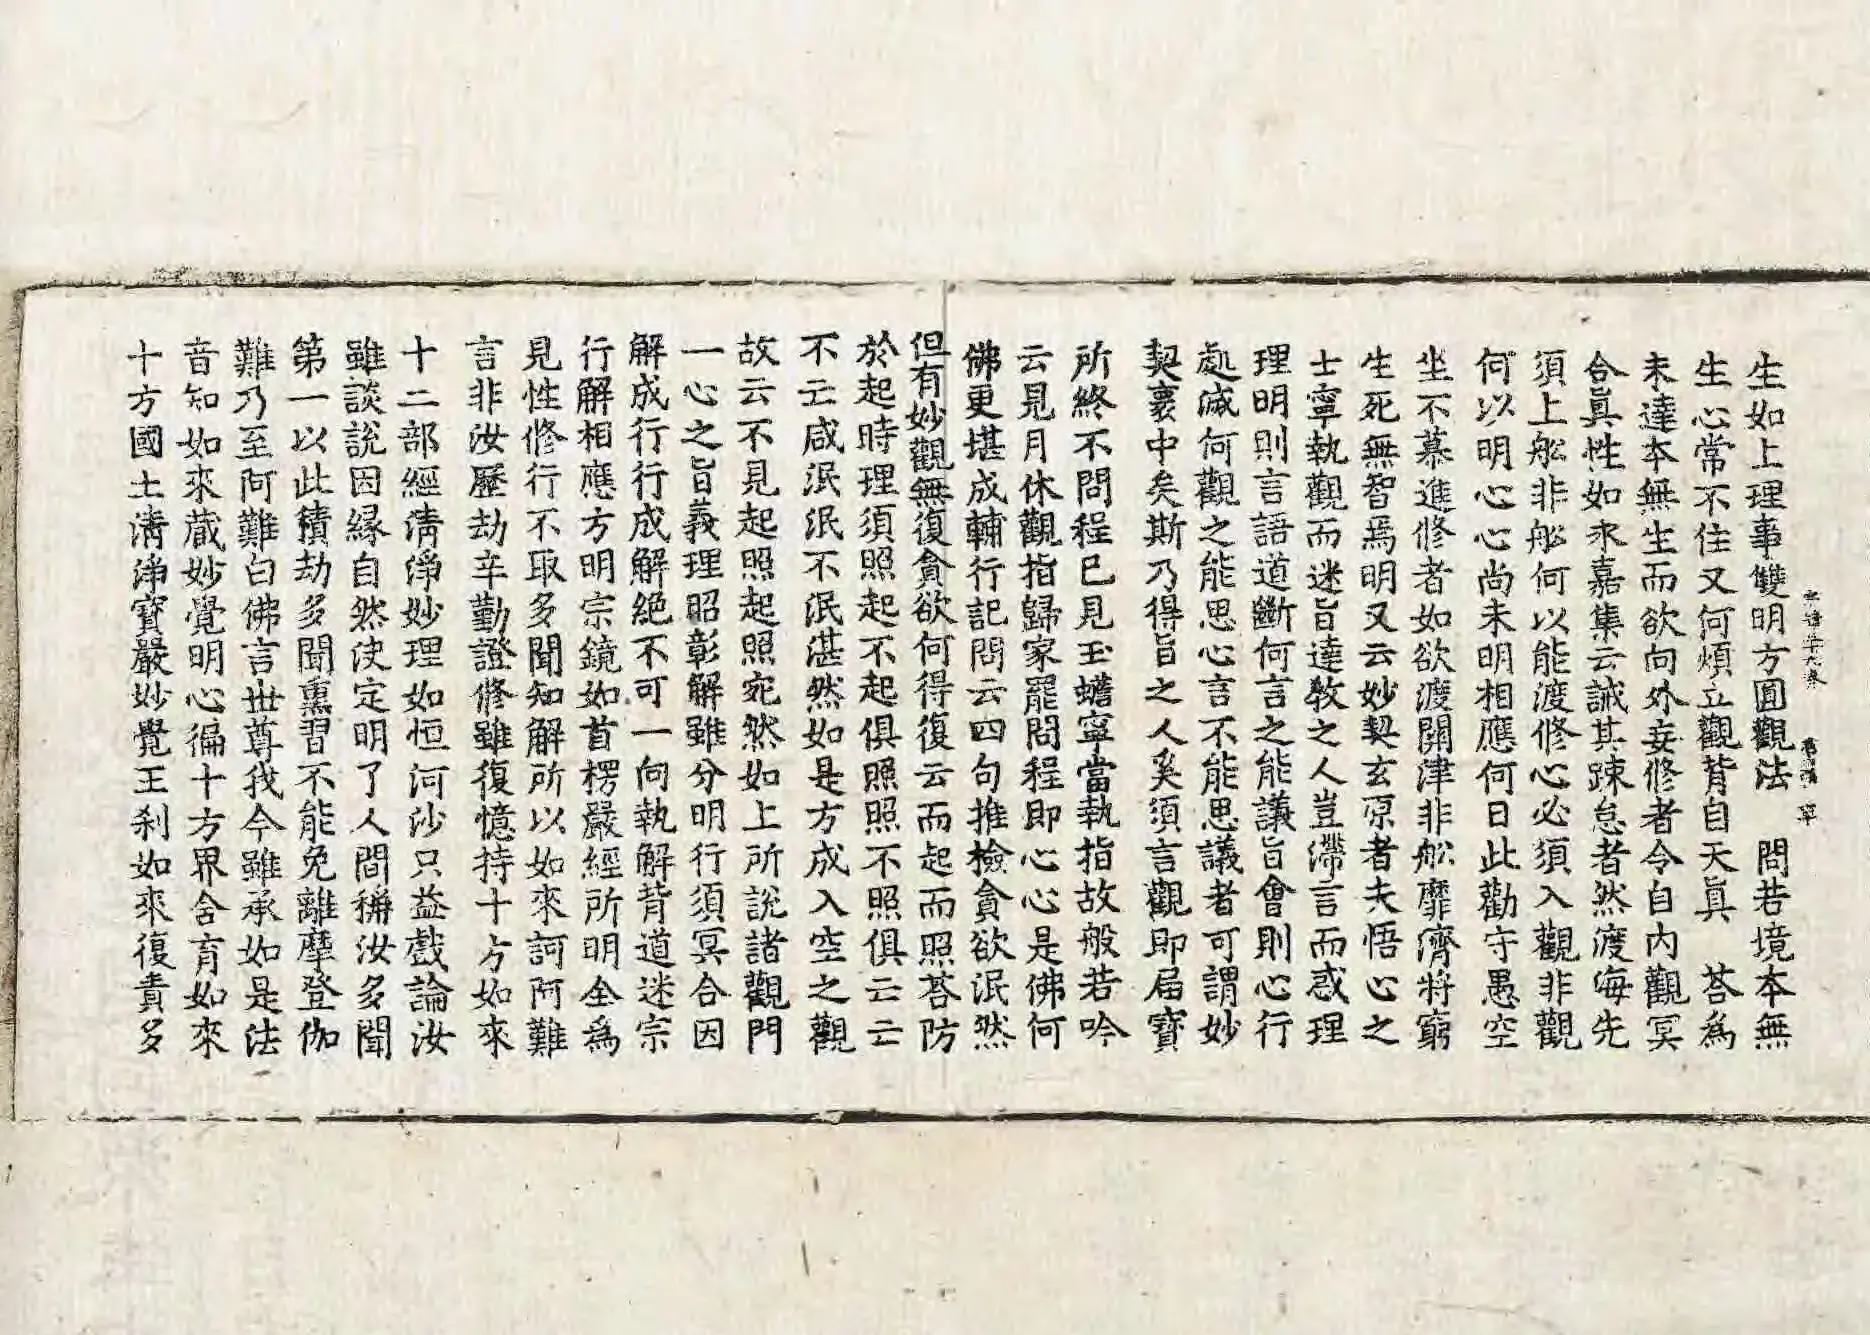 生如上理事雙明方圓觀法　問若境本無
生心常不住又何煩立觀背自天真　荅為
未達本無生而欲向外妄修者令自内觀冥
合真性如永嘉集云誡其踈怠者然渡海先
須上舩非舩何以能渡修心必須入觀非觀
何以明心心尚未明相應何日此勸守愚空
坐不慕進修者如欲渡關津非舩靡濟將窮
生死無智焉明又云妙契玄源者夫悟心之
士寧執觀而迷旨達教之人豈滯言而惑理
理明則言語道斷何言之能議旨會則心行
處滅何觀之能思心言不能思議者可謂妙
契寰中矣斯乃得旨之人奚須言觀即屆寶
所終不問程已見玉蟾寧當執指故般若吟
云見月休觀指歸家罷問程即心心是佛何
佛更堪成輔行記問云四句推檢貪欲泯然
但有妙觀無復貪欲何得復云而起而照荅防
於起時理須照起不起俱照照不照俱云云
不亡咸泯泯不泯湛然如是方成入空之觀
故云不見起照起照宛然如上所說諸觀門
一心之旨義理昭彰解雖分明行須冥合因
解成行行成解絶不可一向執解背道迷宗
行解相應方明宗鏡如首楞嚴經所明全為
見性修行不取多聞知解所以如來訶阿難
言非汝歷劫辛勤證修雖復憶持十方如來
十二部經清淨妙理如恒河沙只益戲論汝
雖談說因緣自然決定明了人間稱汝多聞
第一以此積劫多聞熏習不能免離摩登伽
難乃至阿難白佛言世尊我今雖承如是法
音知如來藏妙覺明心徧十方界含育如來
十方國土清淨寶嚴妙覺王刹如來復責多